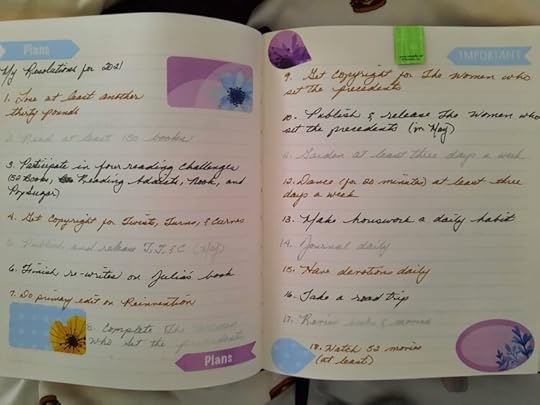 Plans
My Resolutions for 2021
1. Lose at least another
thirty pounds
2. Read at least 150 books
3. Participate in four reading challenges
(52 Books, Reading Addicts, Nook, and
PopSugar)
4. Get Copyright for Twists, Turns, & Curves
5. Publish and release T,T,&C (May)
6. Finish re-writes on Julia's book
7. Do primary edit on Reinvention
8. Complete The Women
Who Set the precedents
Plans
IMPORTANT
9. Get Copyright for The Women who
set the precedents
10. Publish & release The Women who
set the precedents (in May)
11. Garden at least three days a week
12. Dance (for 20 minutes) at least three
days a week
13. Make housework a daily habit
14. Journal daily
15. Have devotions daily
16. Take a road trip
17. Review books & movies
18. Watch 52 movies
(at least)